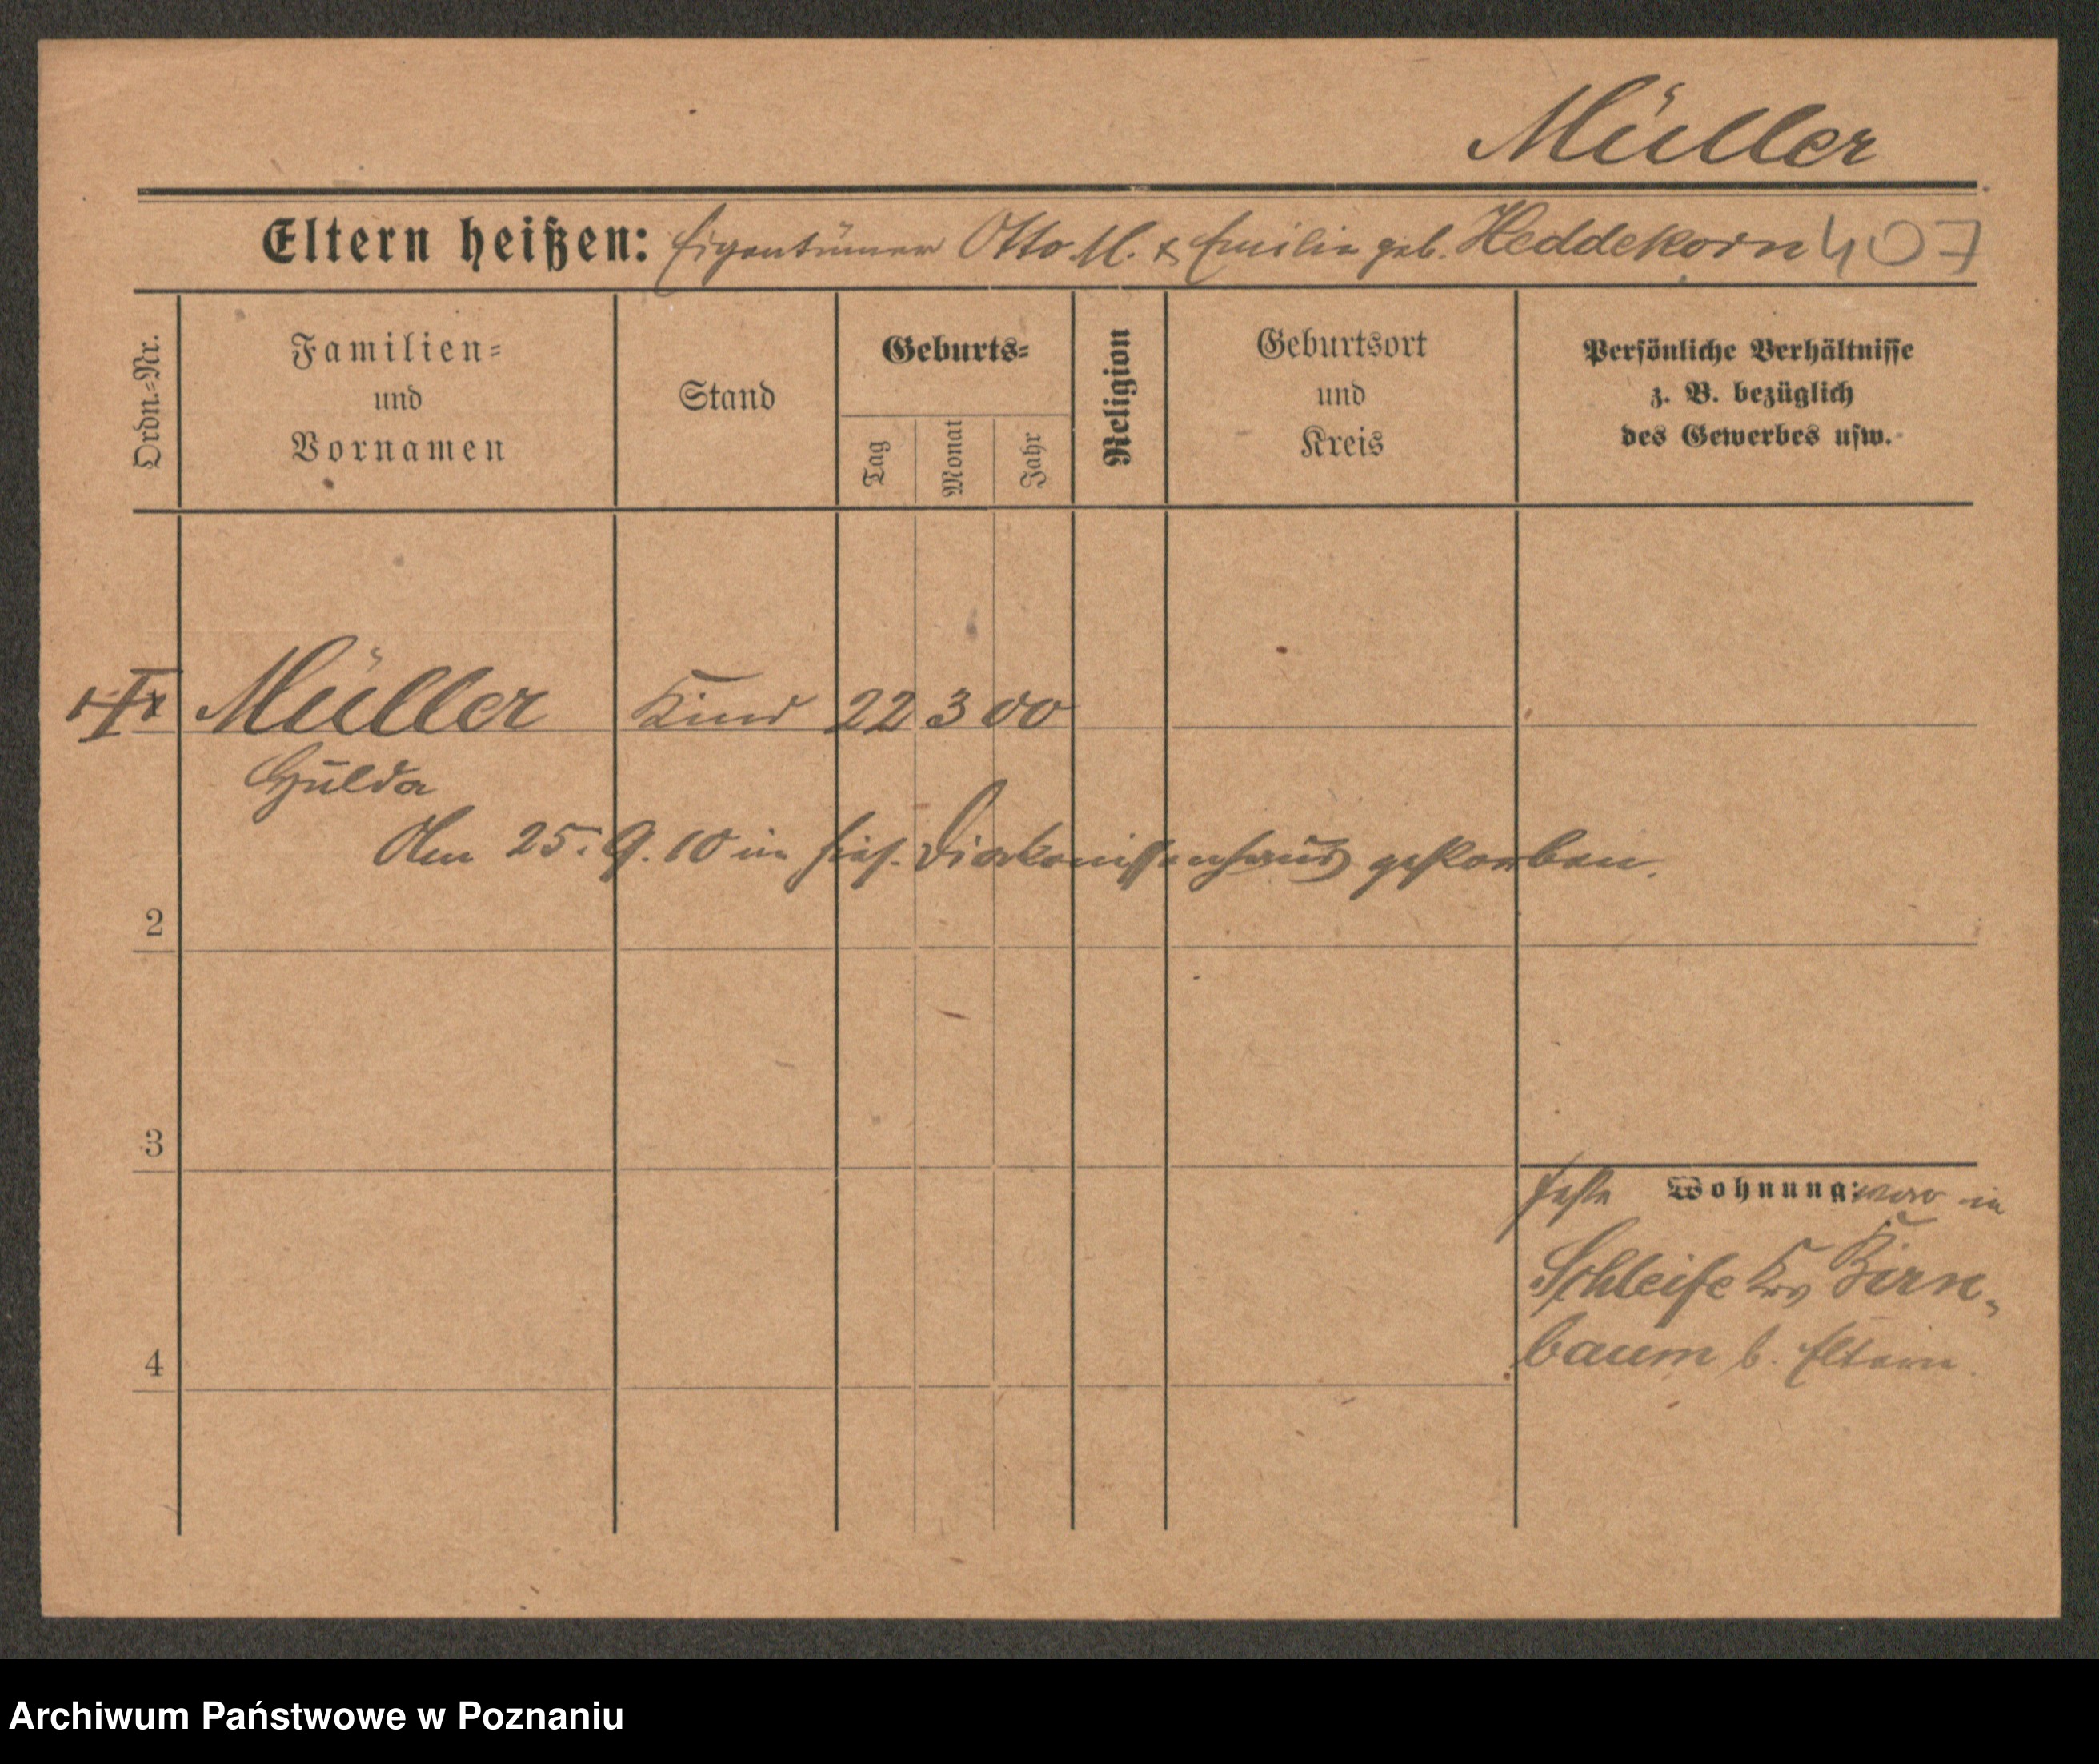 Müller
Eltern heißen: Eigentümer Otto M. & Emilie geb. Heddekorn 407
Ordn.=Nr.
Familien=
und
Vornamen
Stand
Geburts=
Tag
Monat
Jahr
Religion
Geburtsort
und
Kreis
Persönliche Verhältnisse
z. B. bezüglich
des Gewerbes usw.
Müller Kind 22 3 00
Hulda
Am 25. 9. 10 im hies. Diakonissenhaus gestorben.
2
3
feste Wohnung: war in
Schleife Krs Birn-
baum b. Eltern.
4
Archiwum Państwowe w Poznaniu